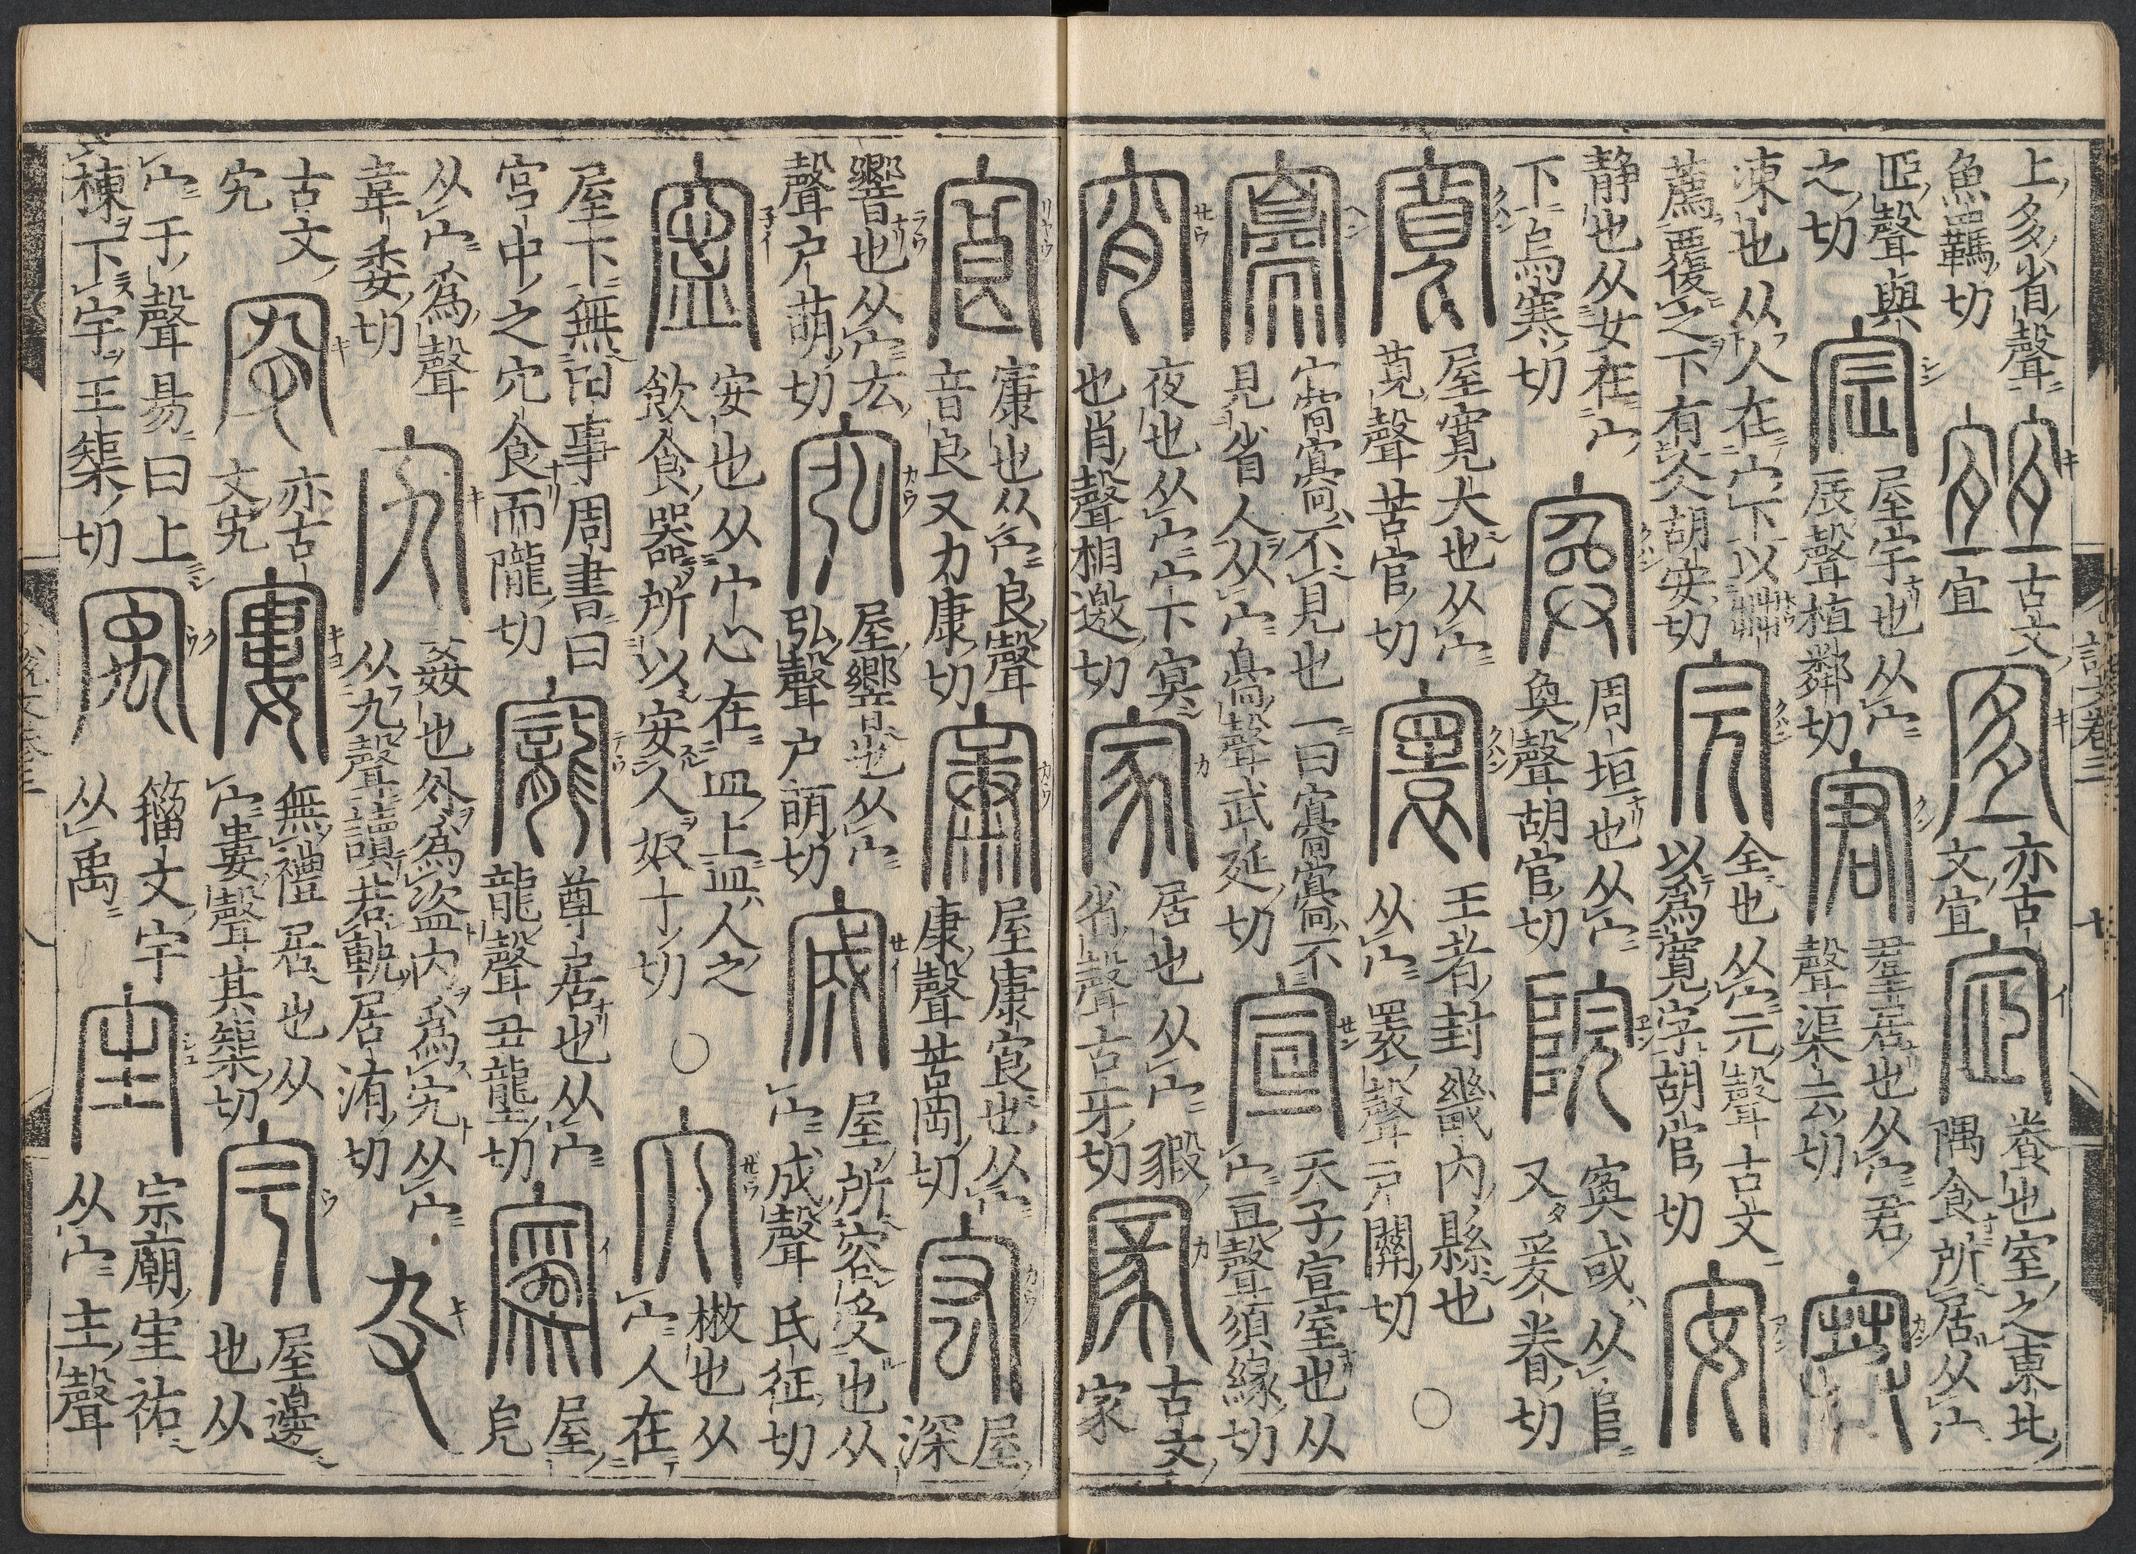 上多省聲
魚羈切
古文
宜
亦古
文宜
養也室之東北
隅食所居从宀
𦣞聲與
之切
宸
屋宇也从宀
辰聲植鄰切
宭
羣居也从宀君
聲渠云切
寒
凍也从人在宀下以茻
薦覆之下有仌胡安切
完
全也从宀元聲古文
以爲寛字胡官切
安
静也从女在宀
下烏寒切
周垣也从宀
奐聲胡官切
院
寏或从𨸏
又爰眷切
寬
屋寛大也从宀
莧聲苦官切
寰
王者封畿内縣也
从宀睘聲戸關切
○
㝰㝰不見也一曰㝰㝰不
見省人从宀臱聲武延切
宣
天子宣室也从
宀亘聲須緣切
宵
夜也从宀宀下冥
也肖聲相邀切
家
居也从宀豭
省聲古牙切
古文
家
說文卷三
㝗
㝩也从宀良聲
音良又力康切
㝩
屋㝩㝗也从宀
康聲苦岡切
屋
深
響也从宀厷
聲户萌切
屋響也从宀
弘聲户萌切
宬
屋所容受也从
宀成聲氏征切
寍
安也从宀心在皿上皿人之
飲食器所以安人奴丁切
○
宂
㮟也从
宀人在
屋下無田事周書曰
宫中之宂食而隴切
寵
尊居也从宀
龍聲丑壟切
寪
屋
皃
从宀爲聲
韋委切
宄
姦也外爲盗内爲宄从宀
从九聲讀若軌居洧切
古文
宄
亦古
文宄
寠
無禮居也从
宀婁聲其榘切
宇
屋邊
也从
宀于聲易曰上
棟下宇王榘切
籀文宇
从禹
宔
宗廟宔祏
从宀主聲